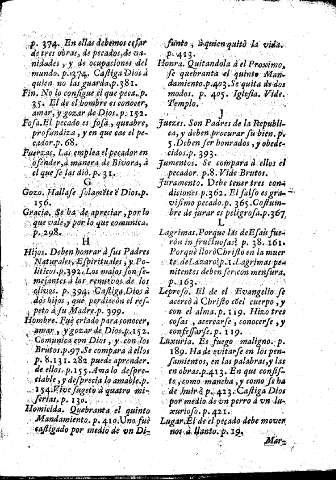 p. 374. En ellas debemos cessar
de tres obras, de pecados, de va-
nidades, y de ocupaciones del
mundo. p.1374. Castiga Dios à
quien no las guarda.p.381.
Fin. No lo consigue el que peca.p.
35. El de el hombre es conocer,
amar, y gozar de Dios. p. 152.
Fosa. El pecado es fosa, quatre,
profundiza, y en que cae el peca-
dor.p. 68.
Fuerzas. Las emplea el pecador en
ofender, à manera de Bivora, à
el que se las diò. p. 31.
G
Gozo. Hallase solamēte ē Dios.p.
156.
Gracia. Se ha de apreciar, por lo
que vale, y por lo que comunica.
p. 298.
H
Hijos. Deben honrar à sus Padres
Naturales, Espirituales, y Po-
liticos.p.392. Los malos son se-
mejantes à los renuevos de los
olivos. p. 394. Castiga Dios à
dos hijos, que perdieron el res-
peto à su Madre. p.399.
Hombre. Fuè criado para conocer,
amar, y gozar de Dios.p.152.
Comunica con Dios, y con los
Brutos.p.97. Se compara à ellos
p. 8.131. 282 puede aprender
de ellos. p.155. Ama lo despre-
ciable, y desprecia lo amable.p.
154. Vive sugeto à quatro mi-
serias. p. 130.
Homicida. Quebranta el quinto
Mandamiento. p.410. Uno fuè
castigado por medio de un Di-
funto, à quien quitò la vida.
p.413.
Honra. Quitandola à el Proximo,
se quebranta el quinto Man-
damiento.p.403. Se quita de dos
modos. p. 405. Iglesia. Vide.
Templo.
J
Juezes. Son Padres de la Republi-
ca, y deben procurar su bien. p.
5. Deben ser honrados, y obede-
cidos.p. 393.
Jumentos. Se compara à ellos el
pecador. p.8. Vide Brutos.
Juramento. Debe tener tres con-
diciones p.362. El falso es gra-
vissimo pecado. p. 365. Costum-
bre de jurar es peligrosa.p.367
L
Lagrimas. Porque las de Esaù fue-
rõn infructuosas? p. 38. 161.
Porquè llorò Christo en la muer
te de Lazaro?p.1. Lagrimas pe-
nitentes deben ser con mensura.
p.163.
Leproso. El de el Evangelio se
acercò à Christo cõ el cuerpo, y
con el alma. p. 119. Hizo tres
cosas, acercarse, conocerse, y
confessarse. p. 119.
Luxuria. Es fuego maligno. p.
189. Hade evitarse en los pen-
samientos, en las palabras, y las
en obras.p.413. En que consis-
te, como mancha, y como se ha
de huir? p. 423. Castiga Dios
por medio de un perro à un lu-
xurioso. p. 421.
Lugar. El de el pecado debe mover
nos à llanto. p. 19.
Mar-